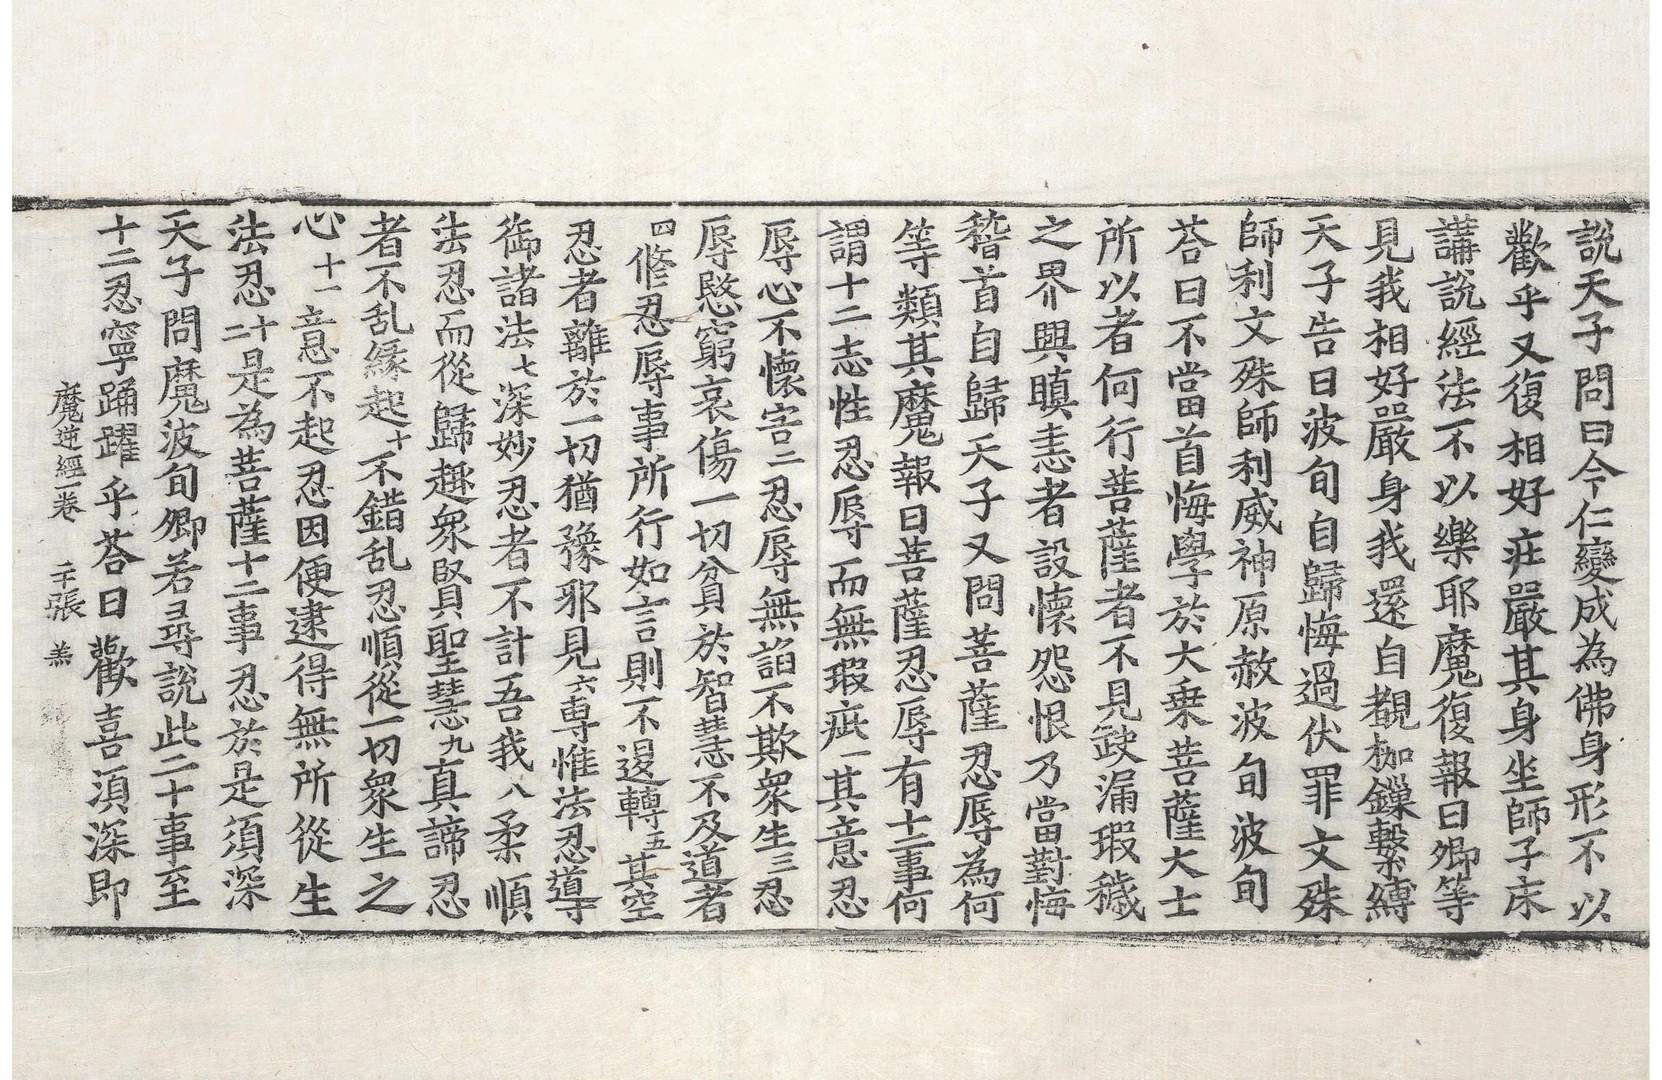 說天子問曰今仁變成為佛身形不以
歡乎又復相好莊嚴其身坐師子床
講說經法不以樂耶魔復報曰卿等
見我相好嚴身我還自覩枷鏁繫縛
天子告曰波旬自歸悔過伏罪文殊
師利文殊師利威神原赦波旬波旬
荅曰不當首悔學於大乗菩薩大士
所以者何行菩薩者不見缺漏瑕穢
之界與瞋恚者設懷怨恨乃當對悔
稽首自歸天子又問菩薩忍辱為何
等類其魔報曰菩薩忍辱有十二事何
謂十二志性忍辱而無瑕疵一其意忍
辱心不懷害二忍辱無諂不欺衆生三忍
辱愍窮哀傷一切貧於智慧不及道者
四修忍辱事所行如言則不退轉五其空
忍者離於一切猶豫邪見六專惟法忍導
御諸法七深妙忍者不計吾我八柔順
法忍而從歸趣衆賢聖慧九真諦忍
者不乱緣起十不錯乱忍順從一切衆生之
心十一意不起忍因便逮得無所從生
法忍十二是為菩薩十二事忍於是須深
天子問魔波旬卿若尋說此二十事至
十二忍寧踊躍乎荅曰歡喜須深即
魔逆經一卷　　張